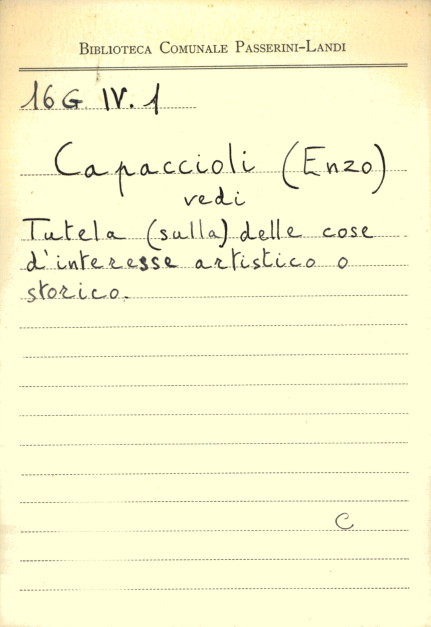 BIBLIOTECA COMUNALE PASSERINI-LANDI
16 G IV. 1
Capaccioli (Enzo)
vedi
Tutela (sulla) delle cose
d'interesse artistico o
storico.
C